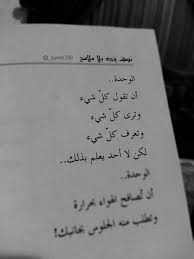 @_queen289 نصف وجه بلا ملامح
الوحدة..
أن تقول كلّ شيء
وترى كلّ شيء
وتعرف كلّ شيء
لكن لا أحد يعلم بذلك..
الوحدة..
أن تُصافح الهواء بحرارة
وتطلب منه الجلوس بجانبك!